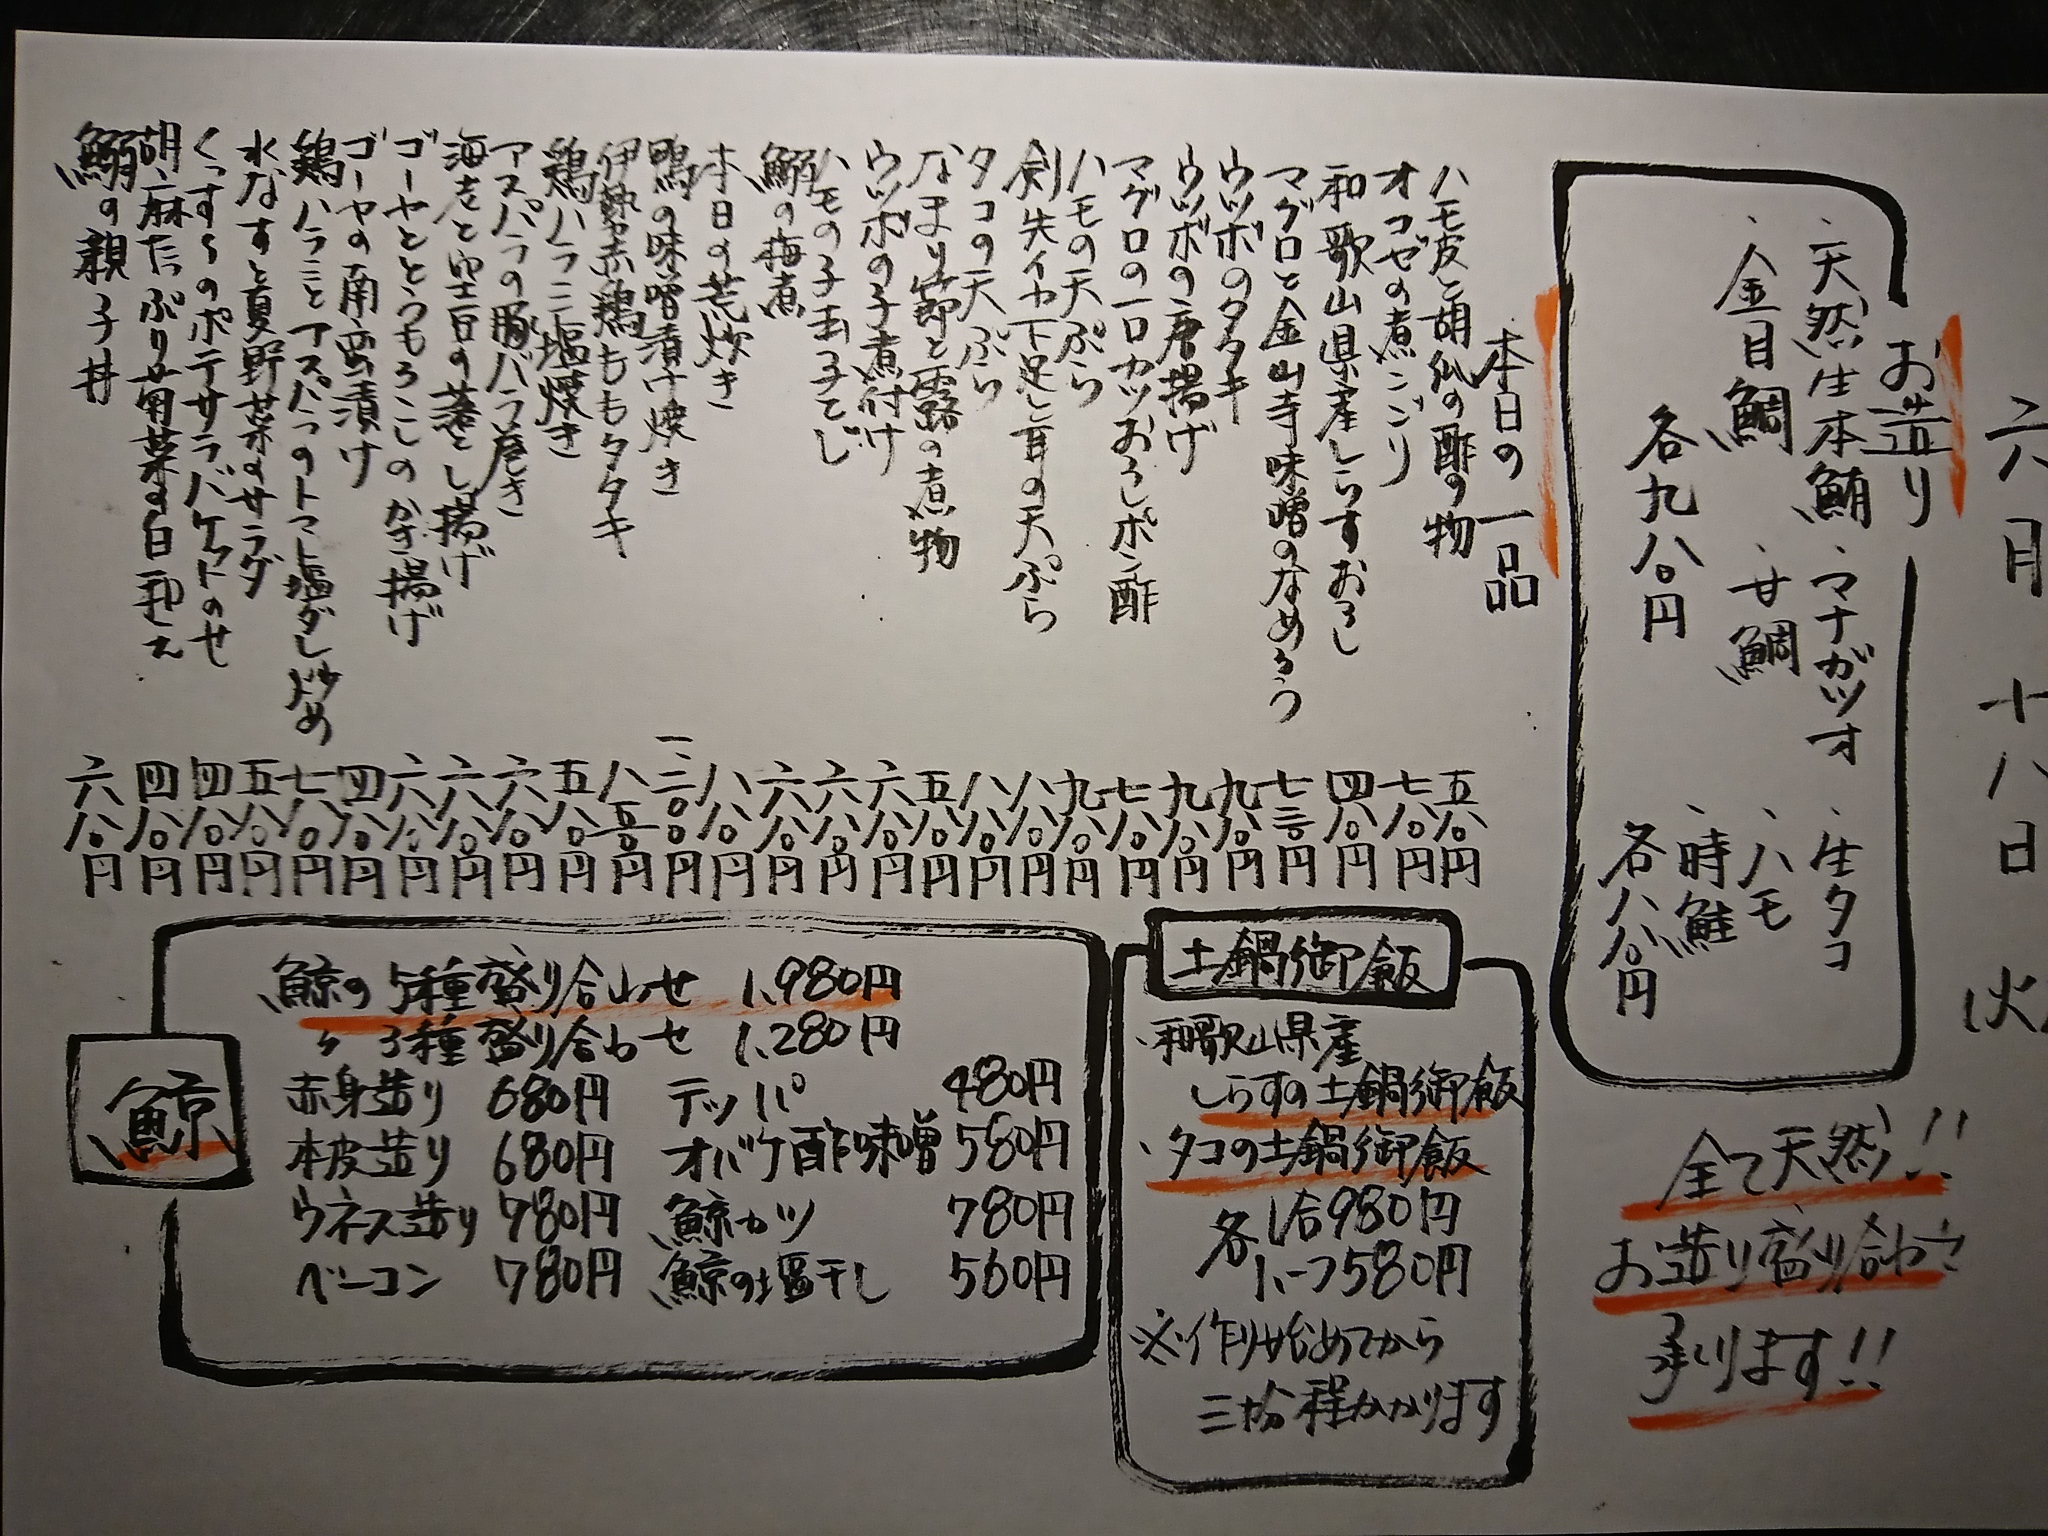 六月 十八日 火
お造り
・天然生本鮪 ・マナガツオ ・生タコ
・金目鯛 ・甘鯛 ・ハモ
・時鮭
各九八〇円
各八八〇円
全て天然!!
お造り盛り合わせ
承ります!!
本日の一品
ハモ皮と胡瓜の酢の物 五八〇円
オコゼの煮こごり 七八〇円
和歌山県産しらすおろし 四八〇円
マグロと金山寺味噌のなめろう 七三〇円
ウツボのタタキ 九八〇円
ウツボの唐揚げ 九八〇円
マグロの一口カツおろしポン酢 七八〇円
ハモの天ぷら 九八〇円
剣先イカ下足と耳の天ぷら 八八〇円
タコの天ぷら 八八〇円
なまり節と露の煮物 五八〇円
ウツボの子煮付け 六八〇円
ハモの子玉子とじ 六八〇円
鰯の梅煮 六八〇円
本日の荒炊き 八八〇円
鴨の味噌漬け焼き 一、二〇〇円
伊勢赤鶏ももタタキ 八五〇円
鶏ハラミ塩焼き 五八〇円
アスパラの豚バラ巻き 六八〇円
海老と空豆の落とし揚げ 六八〇円
ゴーヤととうもろこしのかき揚げ 六八〇円
ゴーヤの南蛮漬け 四八〇円
鶏ハラミとアスパラのトマト塩ダレ炒め 七八〇円
水なすと夏野菜のサラダ 五八〇円
くっすくのポテサラバケットのせ 四八〇円
胡麻たっぷり菊菜の白和え 四八〇円
鰯の親子丼 六八〇円
土鍋御飯
・和歌山県産
しらすの土鍋御飯
・タコの土鍋御飯
各 1合980円
ハーフ580円
※作り始めてから
三十分程かかります
鯨
鯨の5種盛り合わせ 1,980円
〃 3種盛り合わせ 1,280円
赤身造り 680円 テッパ 480円
本皮造り 680円 オバケ酢味噌 580円
ウネス造り 780円 鯨カツ 780円
ベーコン 780円 鯨の塩干し 560円